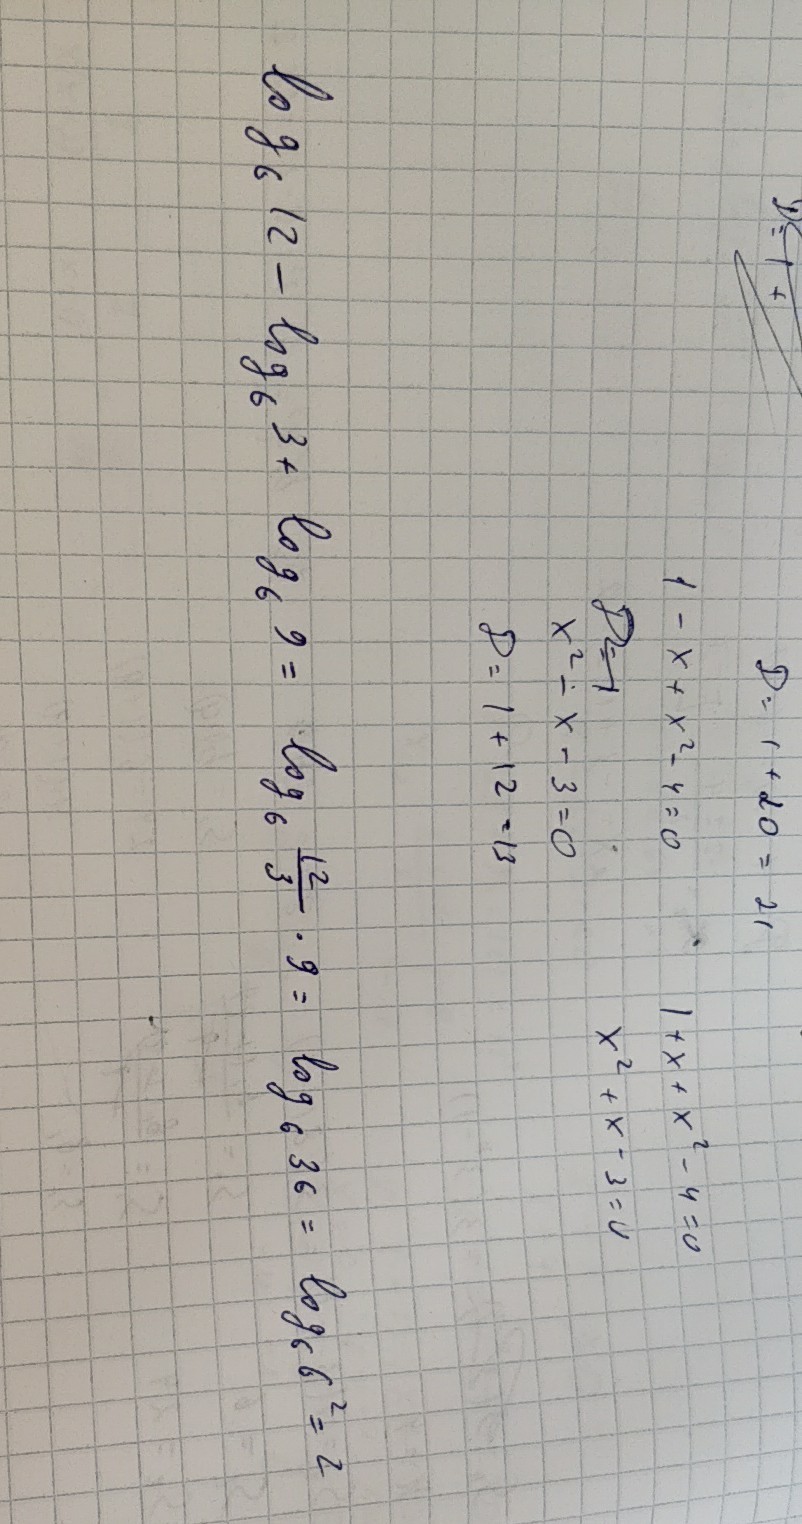 D = 1 +
D = 1 + 20 = 21
1 - x + x² - 4 = 0
1 + x + x² - 4 = 0
D = 1
x² - x - 3 = 0
x² + x - 3 = 0
D = 1 + 12 = 13
log₆ 12 - log₆ 3 + log₆ 9 = log₆ 12/3 · 9 = log₆ 36 = log₆ 6² = 2